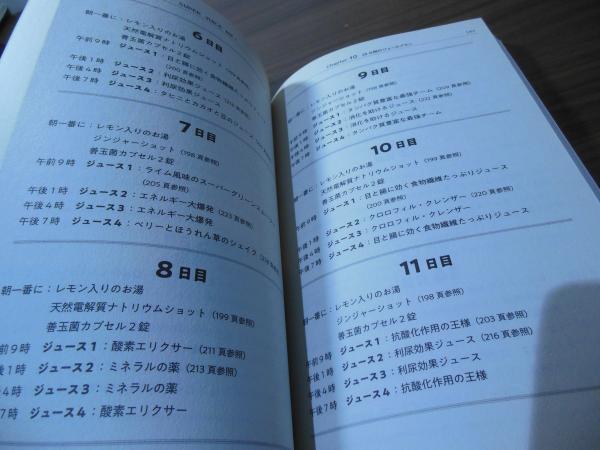 SUPER JUICE ME
6日目
朝一番に：レモン入りのお湯
天然電解質ナトリウムショット
善玉菌カプセル2錠
午前9時 ジュース1：目と腸に効く食物繊維
午後1時 ジュース2：利尿効果ジュース
午後4時 ジュース3：利尿効果ジュース
午後7時 ジュース4：タヒニとカカオと豆のジュース
7日目
朝一番に：レモン入りのお湯
ジンジャーショット（198頁参照）
善玉菌カプセル2錠
午前9時 ジュース1：ライム風味のスーパーグリーン
（205頁参照）
午後1時 ジュース2：エネルギー大爆発（223頁参照）
午後4時 ジュース3：エネルギー大爆発
午後7時 ジュース4：ベリーとほうれん草のシェイク
8日目
朝一番に：レモン入りのお湯
天然電解質ナトリウムショット（199頁参照）
善玉菌カプセル2錠
午前9時 ジュース1：酸素エリクサー（211頁参照）
後1時 ジュース2：ミネラルの薬（213頁参照）
後4時 ジュース3：ミネラルの薬
後7時 ジュース4：酸素エリクサー
Chapter 10
9日目
朝一番に：レモン入りのお湯
ジンジャーショット（198頁参照）
善玉菌カプセル2錠
午前9時 ジュース1：タンパク質豊富な最強チーム
（200頁参照）
午後1時 ジュース2：消化を助けるジュース
午後4時 ジュース3：消化を助けるジュース
午後7時 ジュース4：タンパク質豊富な最強チーム
10日目
朝一番に：レモン入りのお湯
天然電解質ナトリウムショット（199頁参照）
善玉菌カプセル2錠
午前9時 ジュース1：目と腸に効く食物繊維たっぷりジュース
（200頁参照）
午後1時 ジュース2：クロロフィル・クレンザー（220頁参照）
午後4時 ジュース3：クロロフィル・クレンザー
午後7時 ジュース4：目と腸に効く食物繊維たっぷりジュース
11日目
朝一番に：レモン入りのお湯
ジンジャーショット（198頁参照）
善玉菌カプセル2錠
午前9時 ジュース1：抗酸化作用の王様（203頁参照）
午後1時 ジュース2：利尿効果ジュース（216頁参照）
午後4時 ジュース3：利尿効果ジュース
午後7時 ジュース4：抗酸化作用の王様